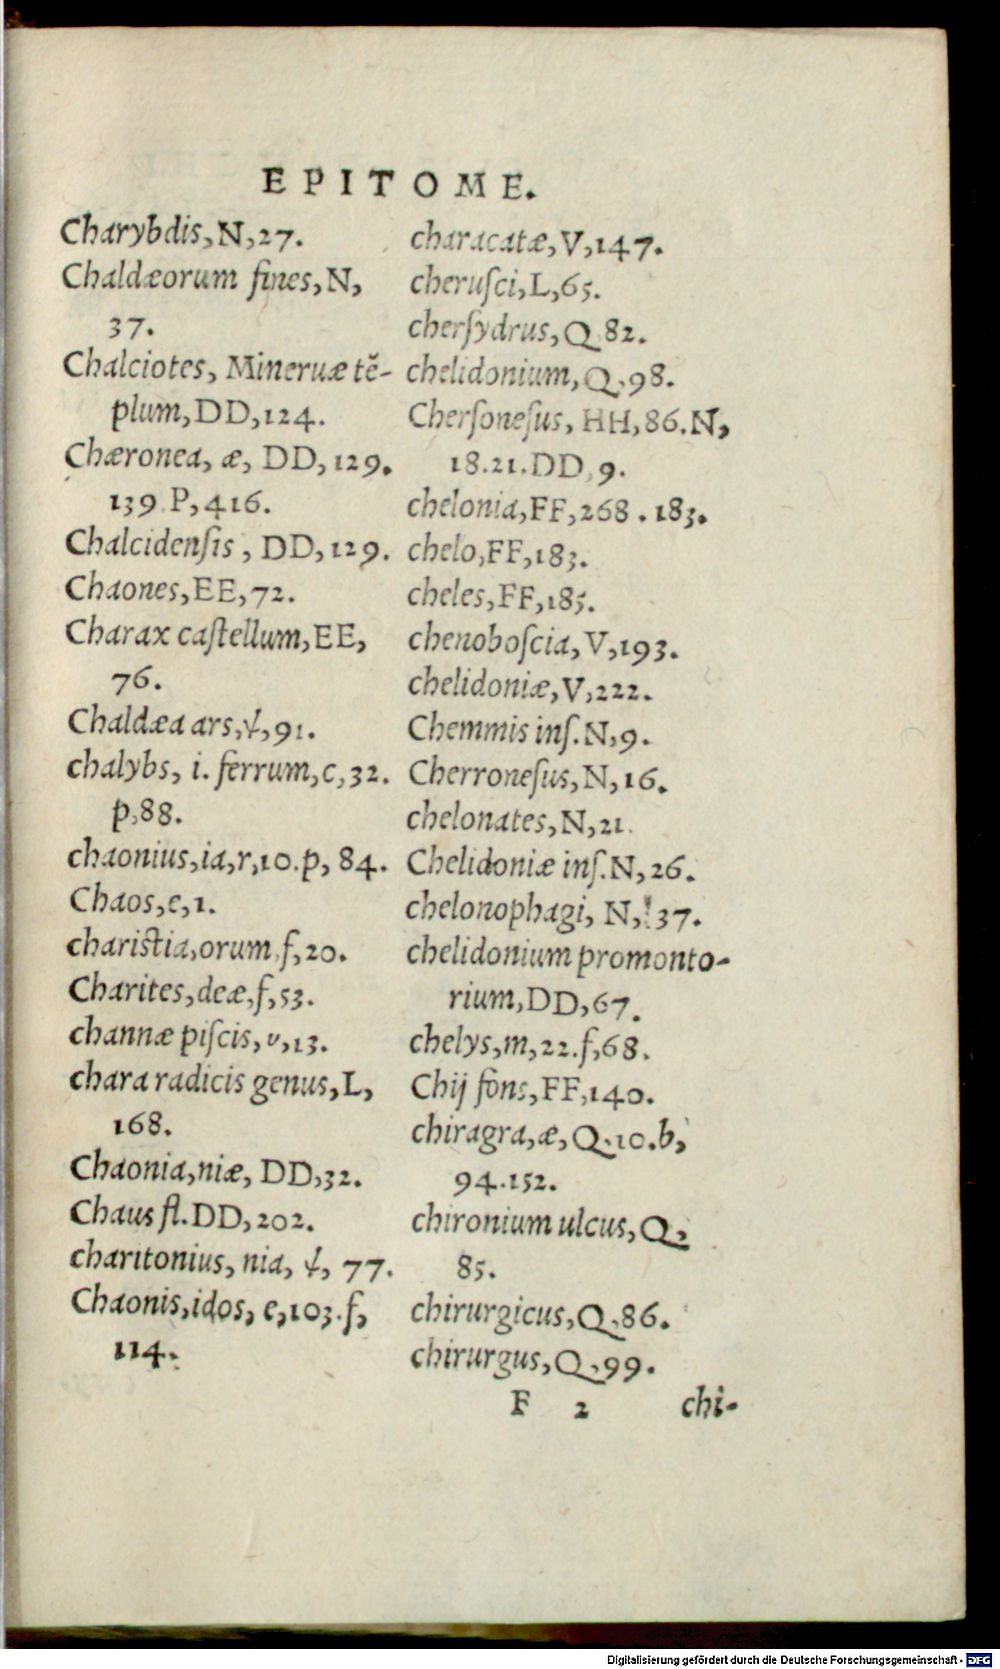 EPITOME.
Charybdis, N, 27.
Chaldæorum fines, N,
37.
Chalciotes, Mineruæ tẽ-
plum, DD, 124.
Chæronea, æ, DD, 129.
139. P, 416.
Chalcidenſis, DD, 129.
Chaones, EE, 72.
Charax caſtellum, EE,
76.
Chaldæa ars, ψ, 91.
chalybs, i. ferrum, c, 32.
p, 88.
chaonius, ia, r, 10. p, 84.
Chaos, e, 1.
chariſtia, orum, f, 20.
Charites, deæ, f, 53.
channæ piſcis, υ, 13.
chara radicis genus, L,
168.
Chaonia, niæ, DD, 32.
Chaus fl. DD, 202.
charitonius, nia, ψ, 77.
Chaonis, idos, e, 103. f,
114.
characatæ, V, 147.
cheruſci, L, 65.
cherſydrus, Q, 82.
chelidonium, Q, 98.
Cherſoneſus, HH, 86. N,
18. 21. DD, 9.
chelonia, FF, 268. 183.
chelo, FF, 183.
cheles, FF, 185.
chenoboſcia, V, 193.
chelidoniæ, V, 222.
Chemmis inſ. N, 9.
Cherroneſus, N, 16.
chelonates, N, 21.
Chelidoniæ inſ. N, 26.
chelonophagi, N, 37.
chelidonium promonto-
rium, DD, 67.
chelys, m, 22. f, 68.
Chij fõns, FF, 140.
chiragra, æ, Q, 10. b,
94. 152.
chironium ulcus, Q,
85.
chirurgicus, Q, 86.
chirurgus, Q, 99.
F 2 chi-
Digitalisierung gefördert durch die Deutsche Forschungsgemeinschaft - DFG